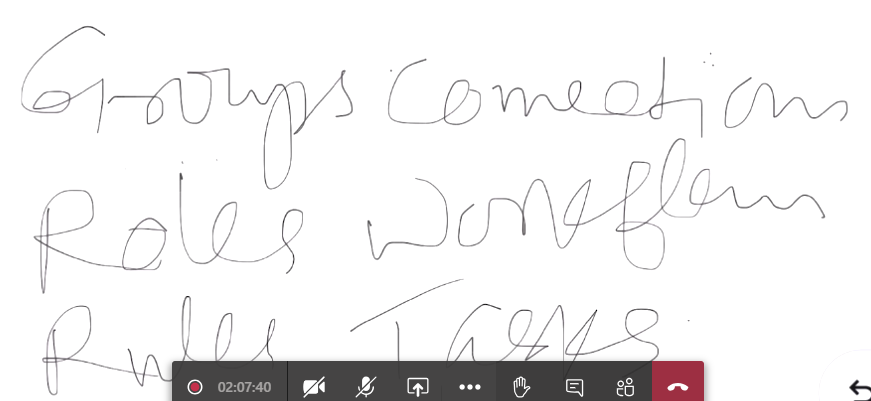 Groups Connections
Roles Workflows
Rules Tasks
02:07:40